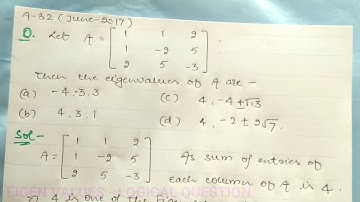 A-32 (June-2017)
Q. Let A = [ 1 1 2
1 -2 5
2 5 -3 ].
Then the eigenvalues of A are -
(a) -4, 3, 3 (c) 4, -4 ± √13
(b) 4, 3, 1 (d) 4, -2 ± 2√7.
Sol- A = [ 1 1 2
1 -2 5
2 5 -3 ] As sum of entries of
each column of A is 4.
EIGEN VALUES LOGICAL QUESTION
4 is one of the